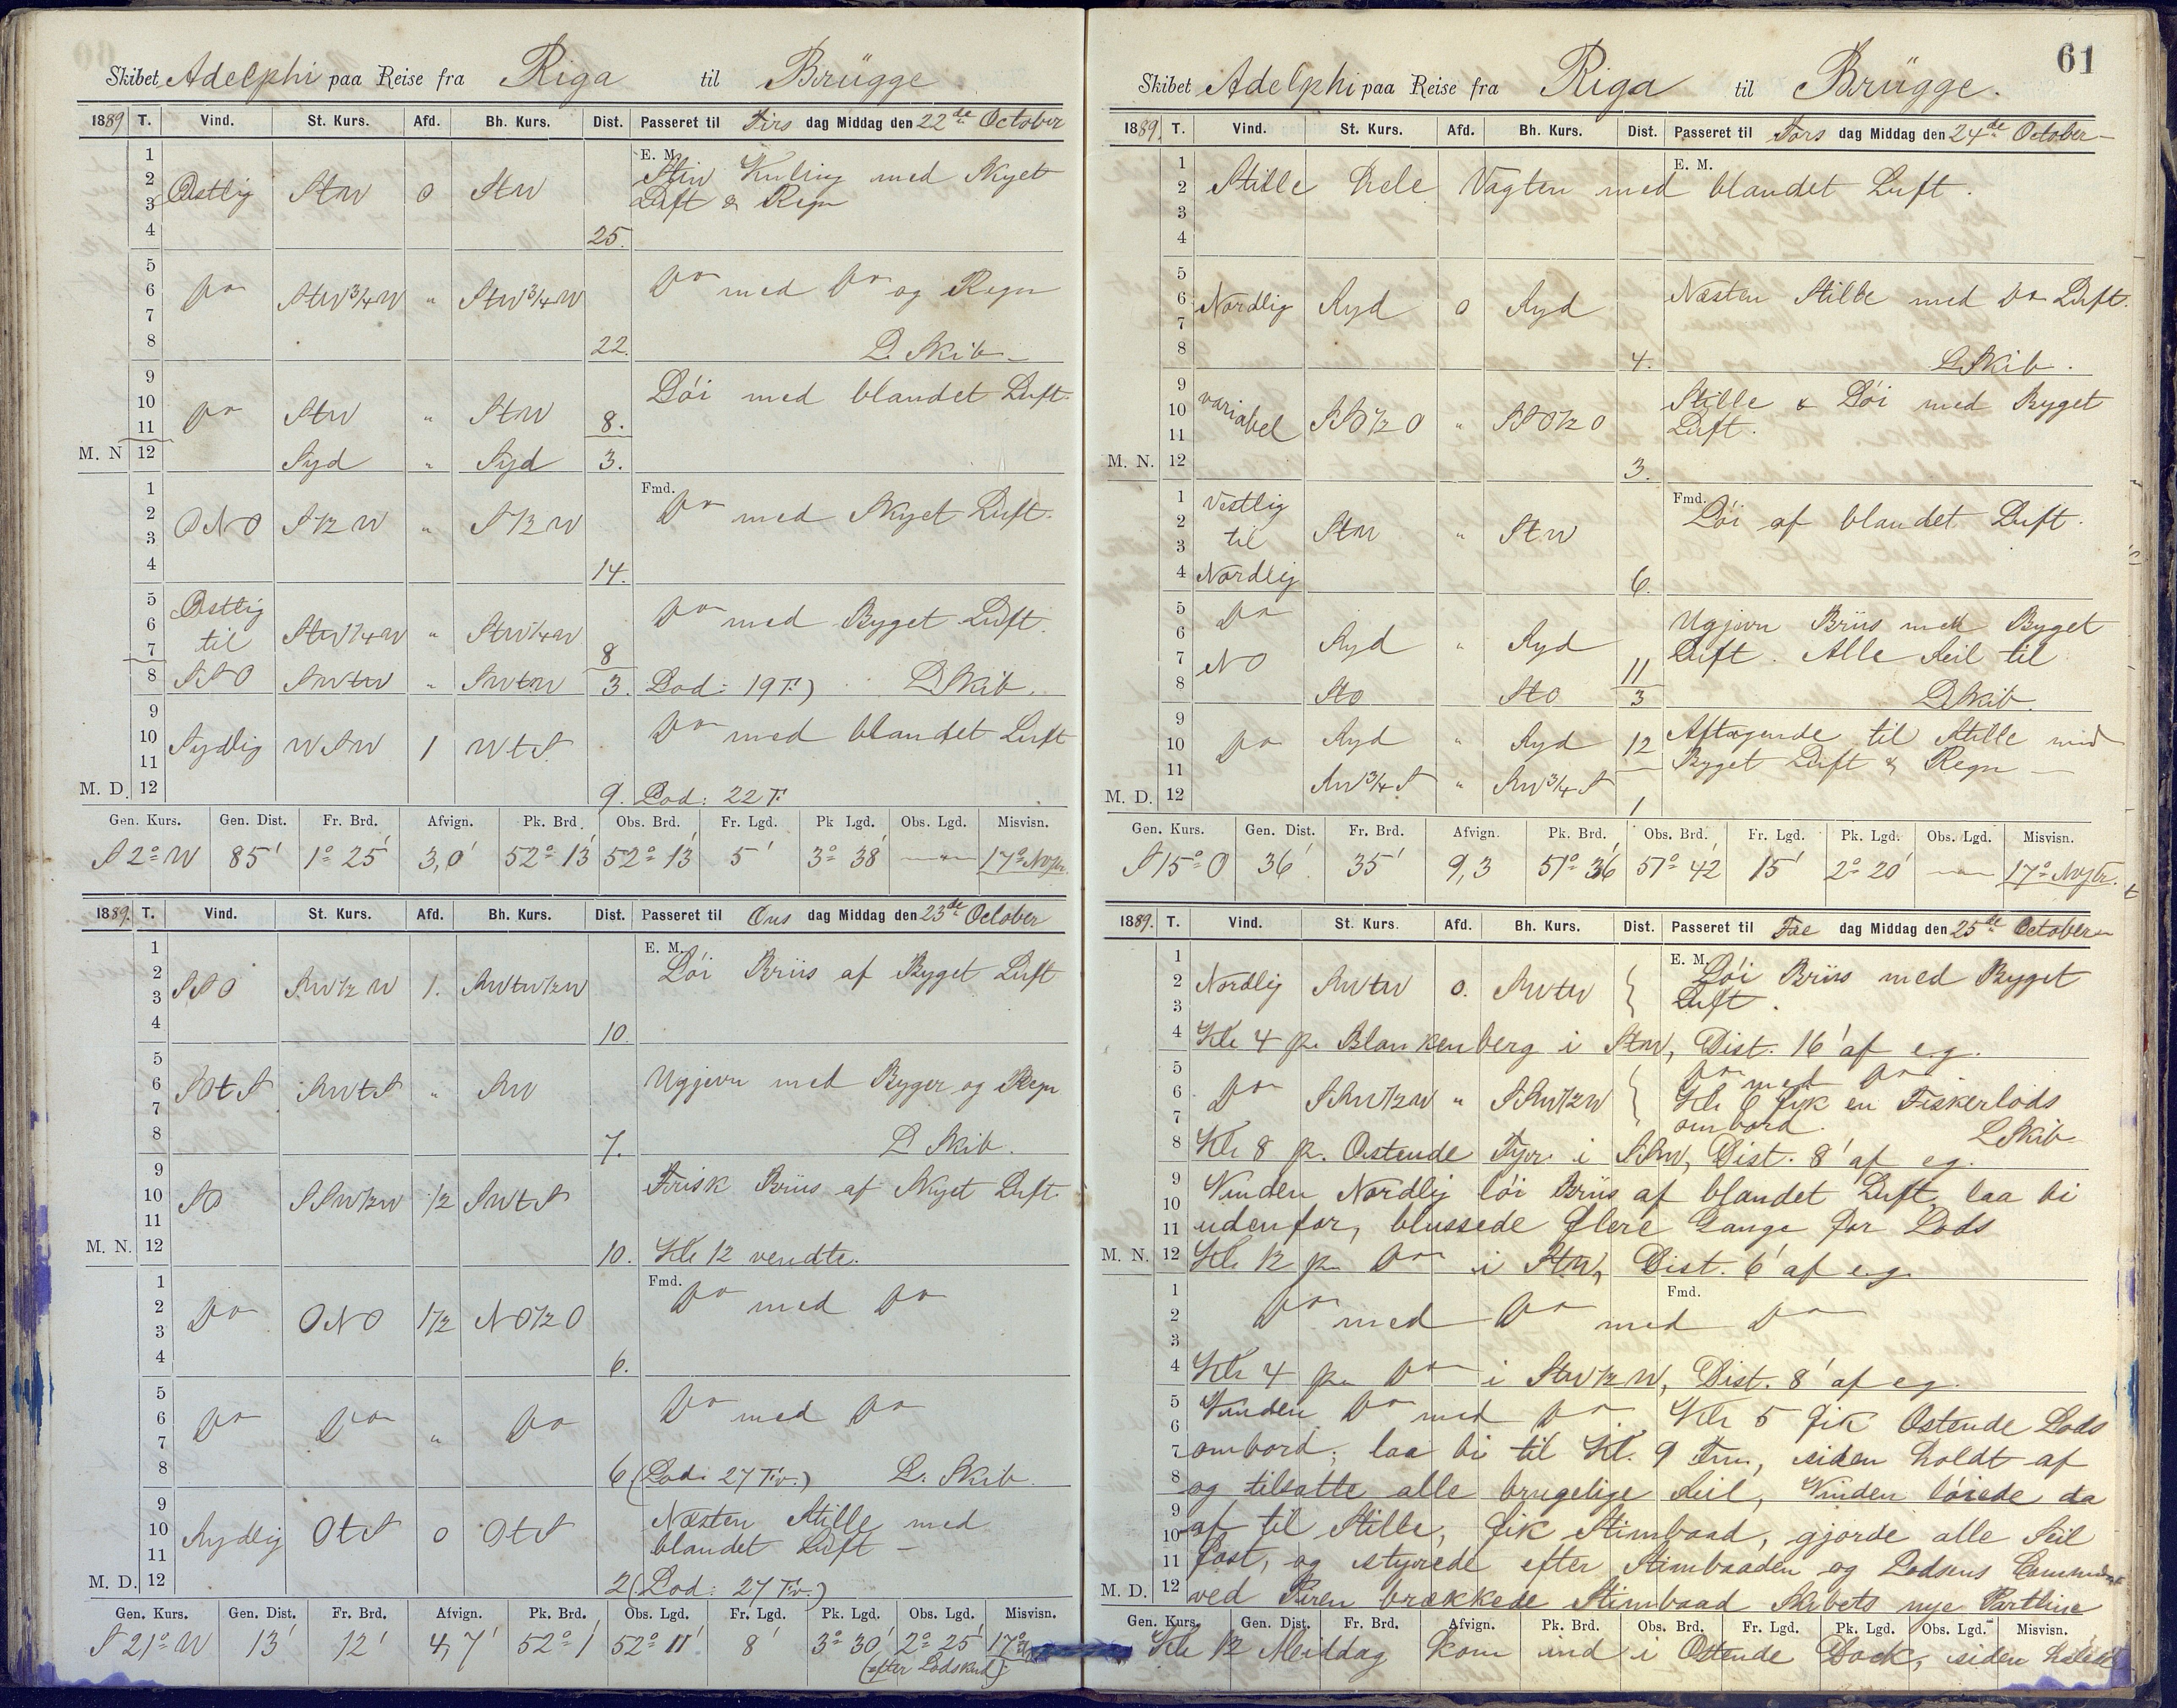 Skibet Adelphi paa Reise fra Riga til Brügge
1889 T. Vind. St. Kurs. Afd. Bh. Kurs. Dist. Passeret til Tirs dag Middag den 22de October
1
2
3
4
Østlig StW 0 StW 25.
E. M.
Stiv Kuling med Skyet
Luft & Regn
5
6
7
8
Do StW3/4W " StW3/4W 22.
Do med Do og Regn
L. Skib
9
10
11
M. N 12
Do StW " StW 8.
Syd " Syd 3.
Löi med blandet Luft
1
2
3
4
ONO S1/2W " S1/2W 14.
Fmd.
Do med Skyet Luft
5
6
7
8
Østlig
til StW1/4W " StW1/4W 8
SSO SWtW " SWtW 3.
Do med Byget Luft.
Lod: 19 F.) L. Skib.
9
10
11
M. D. 12
Sydlig WSW 1 WtS. 9.
Do med blandet Luft
Lod: 22 F.
Gen. Kurs. Gen. Dist. Fr. Brd. Afvign. Pk. Brd. Obs. Brd. Fr. Lgd. Pk Lgd. Obs. Lgd. Misvisn.
S 2° W 85' 1° 25' 3,0' 52° 13' 52° 13' 5' 3° 38' 17°
1889. T. Vind. St. Kurs. Afd. Bh. Kurs. Dist. Passeret til Ons dag Middag den 23de October
1
2
3
4
SSO SW1/2W 1. SWtW1/2W 10.
E. M.
Löi Briis af Byget Luft
5
6
7
8
SOtS SWtS " SW 7.
Ugjevn med Byger og Regn
L. Skib.
9
10
11
M. N. 12
SO SSW1/2W 1/2 SWtS 10.
Frisk Briis af Skyet Luft.
Kl 12 vendte.
1
2
3
4
Do ONO 1 1/2 NO1/2O 6.
Fmd.
Do med Do
5
6
7
8
Do Do " Do 6
Do med Do
(Lod: 27 Fv.) L. Skib.
9
10
11
M. D. 12
Sydlig OtS 0 OtS 2
Næsten Stille med
blandet Luft
(Lod: 27 Fv.)
Gen. Kurs. Gen. Dist. Fr. Brd. Afvign. Pk. Brd. Obs. Lgd. Fr. Lgd. Pk. Lgd. Obs. Lgd. Misvisn.
S 21° W 13' 12' 4,7' 52° 1' 52° 11' 8' 3° 30' 2° 25' 17°
(efter Lodskud)
61
Skibet Adelphi paa Reise fra Riga til Brügge.
1889. T. Vind. St. Kurs. Afd. Bh. Kurs. Dist. Passeret til Tors dag Middag den 24de October
1
2
3
4
E. M.
Stille hele Vagten med blandet Luft.
5
6
7
8
Nordlig Syd 0 Syd 4.
Næsten Stille med Do Luft.
L Skib.
9
10
11
M. N. 12
variabel SSO1/2O " SSO1/2O 3.
Stille & Löi med Byget
Luft.
1
2
3
4
Vestlig
til StW " StW
Nordlig 6.
Fmd.
Löi af blandet Luft.
5
6
7
8
Do
NO Syd " Syd 11
StO StO 3
Ugjevn Briis med Byget
Luft. Alle Seil til
L Skib.
9
10
11
M. D. 12
Do Syd " Syd 12
SW3/4S " SW3/4S 1
Aftagende til Stille med
Byget Luft & Regn
Gen. Kurs. Gen. Dist. Fr. Brd. Afvign. Pk. Brd. Obs. Brd. Fr. Lgd. Pk. Lgd. Obs. Lgd. Misvisn.
S 15° O 36' 35' 9,3 51° 36' 51° 42' 15' 2° 20' 17°
1889. T. Vind. St. Kurs. Afd. Bh. Kurs. Dist. Passeret til Fre dag Middag den 25de October
1
2
3
Nordlig SWtW 0. SWtW
E. M.
Löi Briis med Byget
Luft.
4 Kl 4 p. Blankenberg i StW, Dist. 16' af e.g.
5
6
7
Do SSW1/2W " SSW1/2W
Do med Do
Kl 6 fik en Fiskerlods
ombord. L Skib
8 Kl 8 p. Ostende Fyr i SSW, Dist. 8' af eg.
9
10 Vinden Nordlig löi Briis af blandet Luft, laa bi
11 udenfor, blussede flere Gange for Lods
M. N. 12 Kl 12 p. Do i StW, Dist. 6' af e.g.
1
2
3
Fmd.
Do med Do med Do
4 Kl 4 p. Do i StW1/2W, Dist. 8' af eg.
5
6 Vinden Do med Do. Kl 5 fik Ostende Lods
7 ombord, laa bi til Kl. 9 Fm., siden holdt af
8 og tilsatte alle brugelige Seil, Vinden löiede da
9
10 af til Stille, fik Stimbaad, gjorde alle Seil
11 fast, og styrede efter Stimbaaden og Lodsens
M. D. 12 ved Piren brækkede Stimbaad Skibets nye
Gen. Kurs. Gen. Dist. Fr. Brd. Afvign. Pk. Brd. Obs. Brd. Fr. Lgd. Pk. Lgd. Obs. Lgd. Misvisn.
Kl 12 Middag kom ind i Ostende Dock, siden